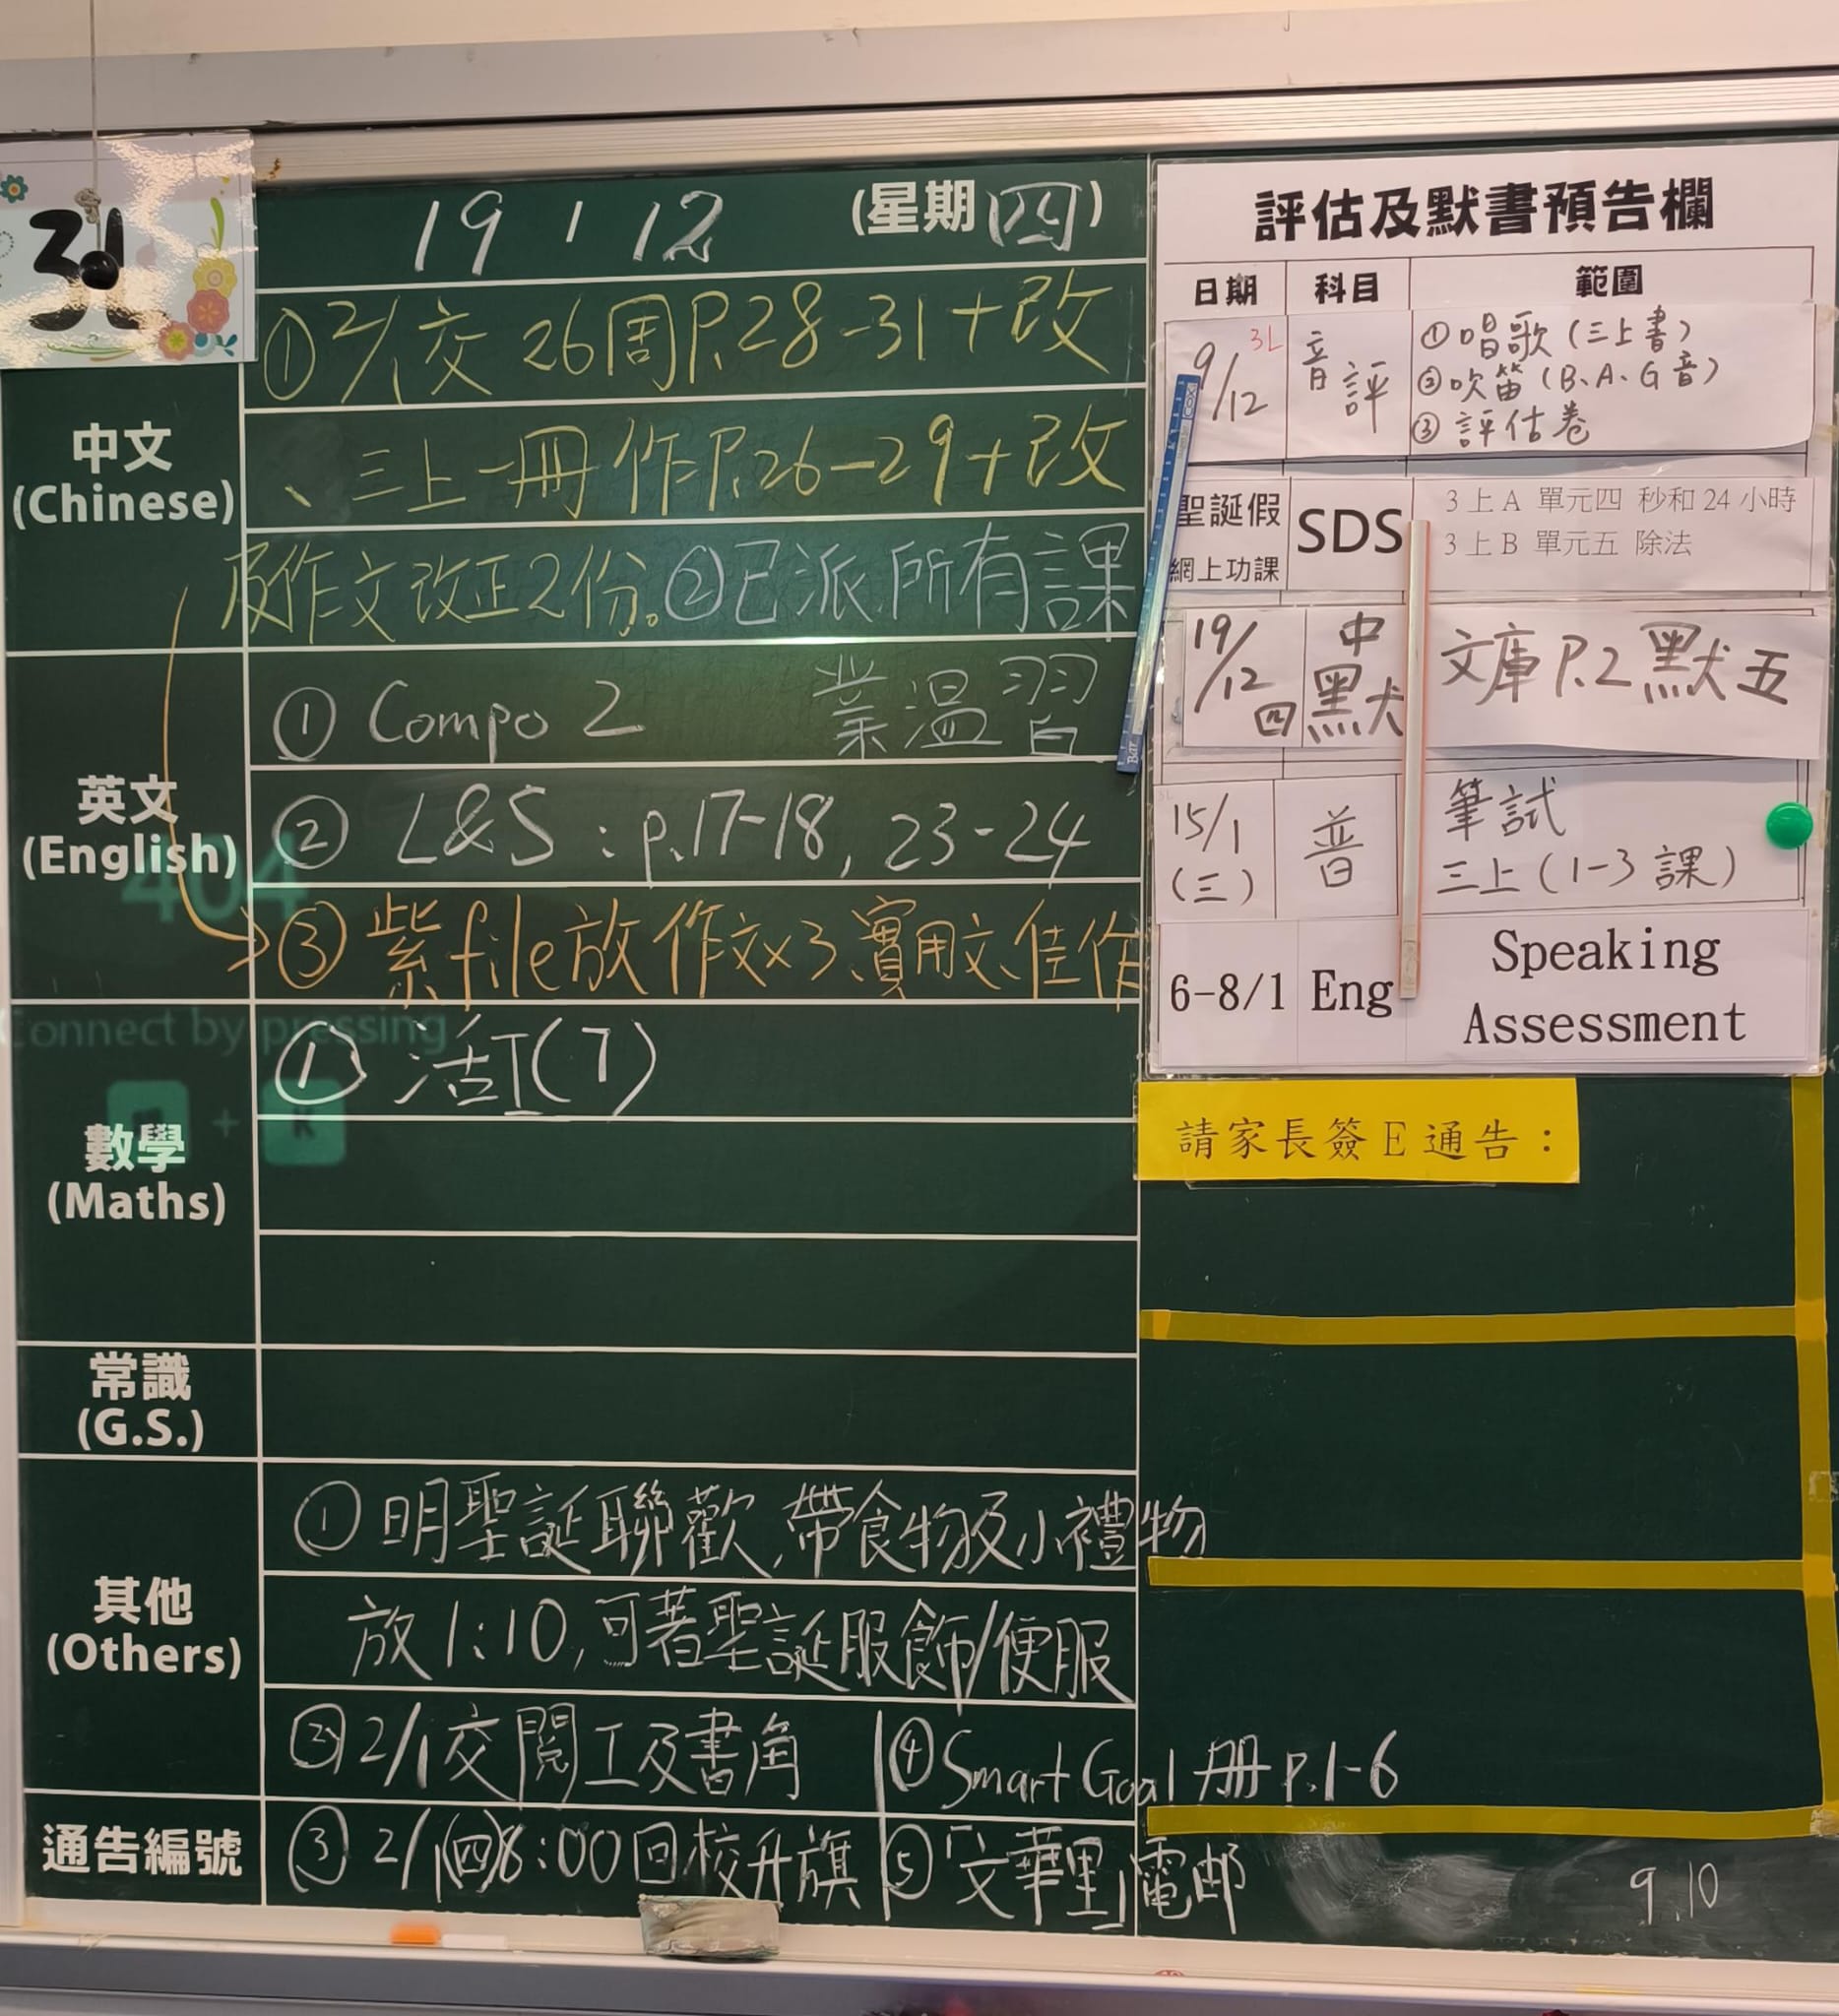 3L
19 / 12 (星期四)
中文
(Chinese)
①2/1交 26周P.28-31+改
、三上一冊 作P.26-29+改
及作文改正2份。②已派所有課
業溫習
英文
(English)
① Compo 2
② L&S : p.17-18, 23-24
③ 紫file放作文x3、實用文、佳作
404
Connect by pressing
+ K
數學
(Maths)
① 活I(7)
常識
(G.S.)
其他
(Others)
① 明聖誕聯歡,帶食物及小禮物
放1:10,可著聖誕服飾/便服
② 2/1交閱工及書角
④ Smart Goal 册 p.1-6
通告編號
③ 2/1(四)8:00回校升旗
⑤「文華里」電郵
9, 10
評估及默書預告欄
日期 科目 範圍
3L
9/12 音評 ①唱歌(三上書)
②吹笛(B、A、G音)
③評估卷
聖誕假 SDS 3上A 單元四 秒和24小時
網上功課 3上B 單元五 除法
19/12 四 中默 文庫P.2默五
15/1 (三) 普 筆試
三上(1-3課)
6-8/1 Eng Speaking
Assessment
請家長簽E通告：